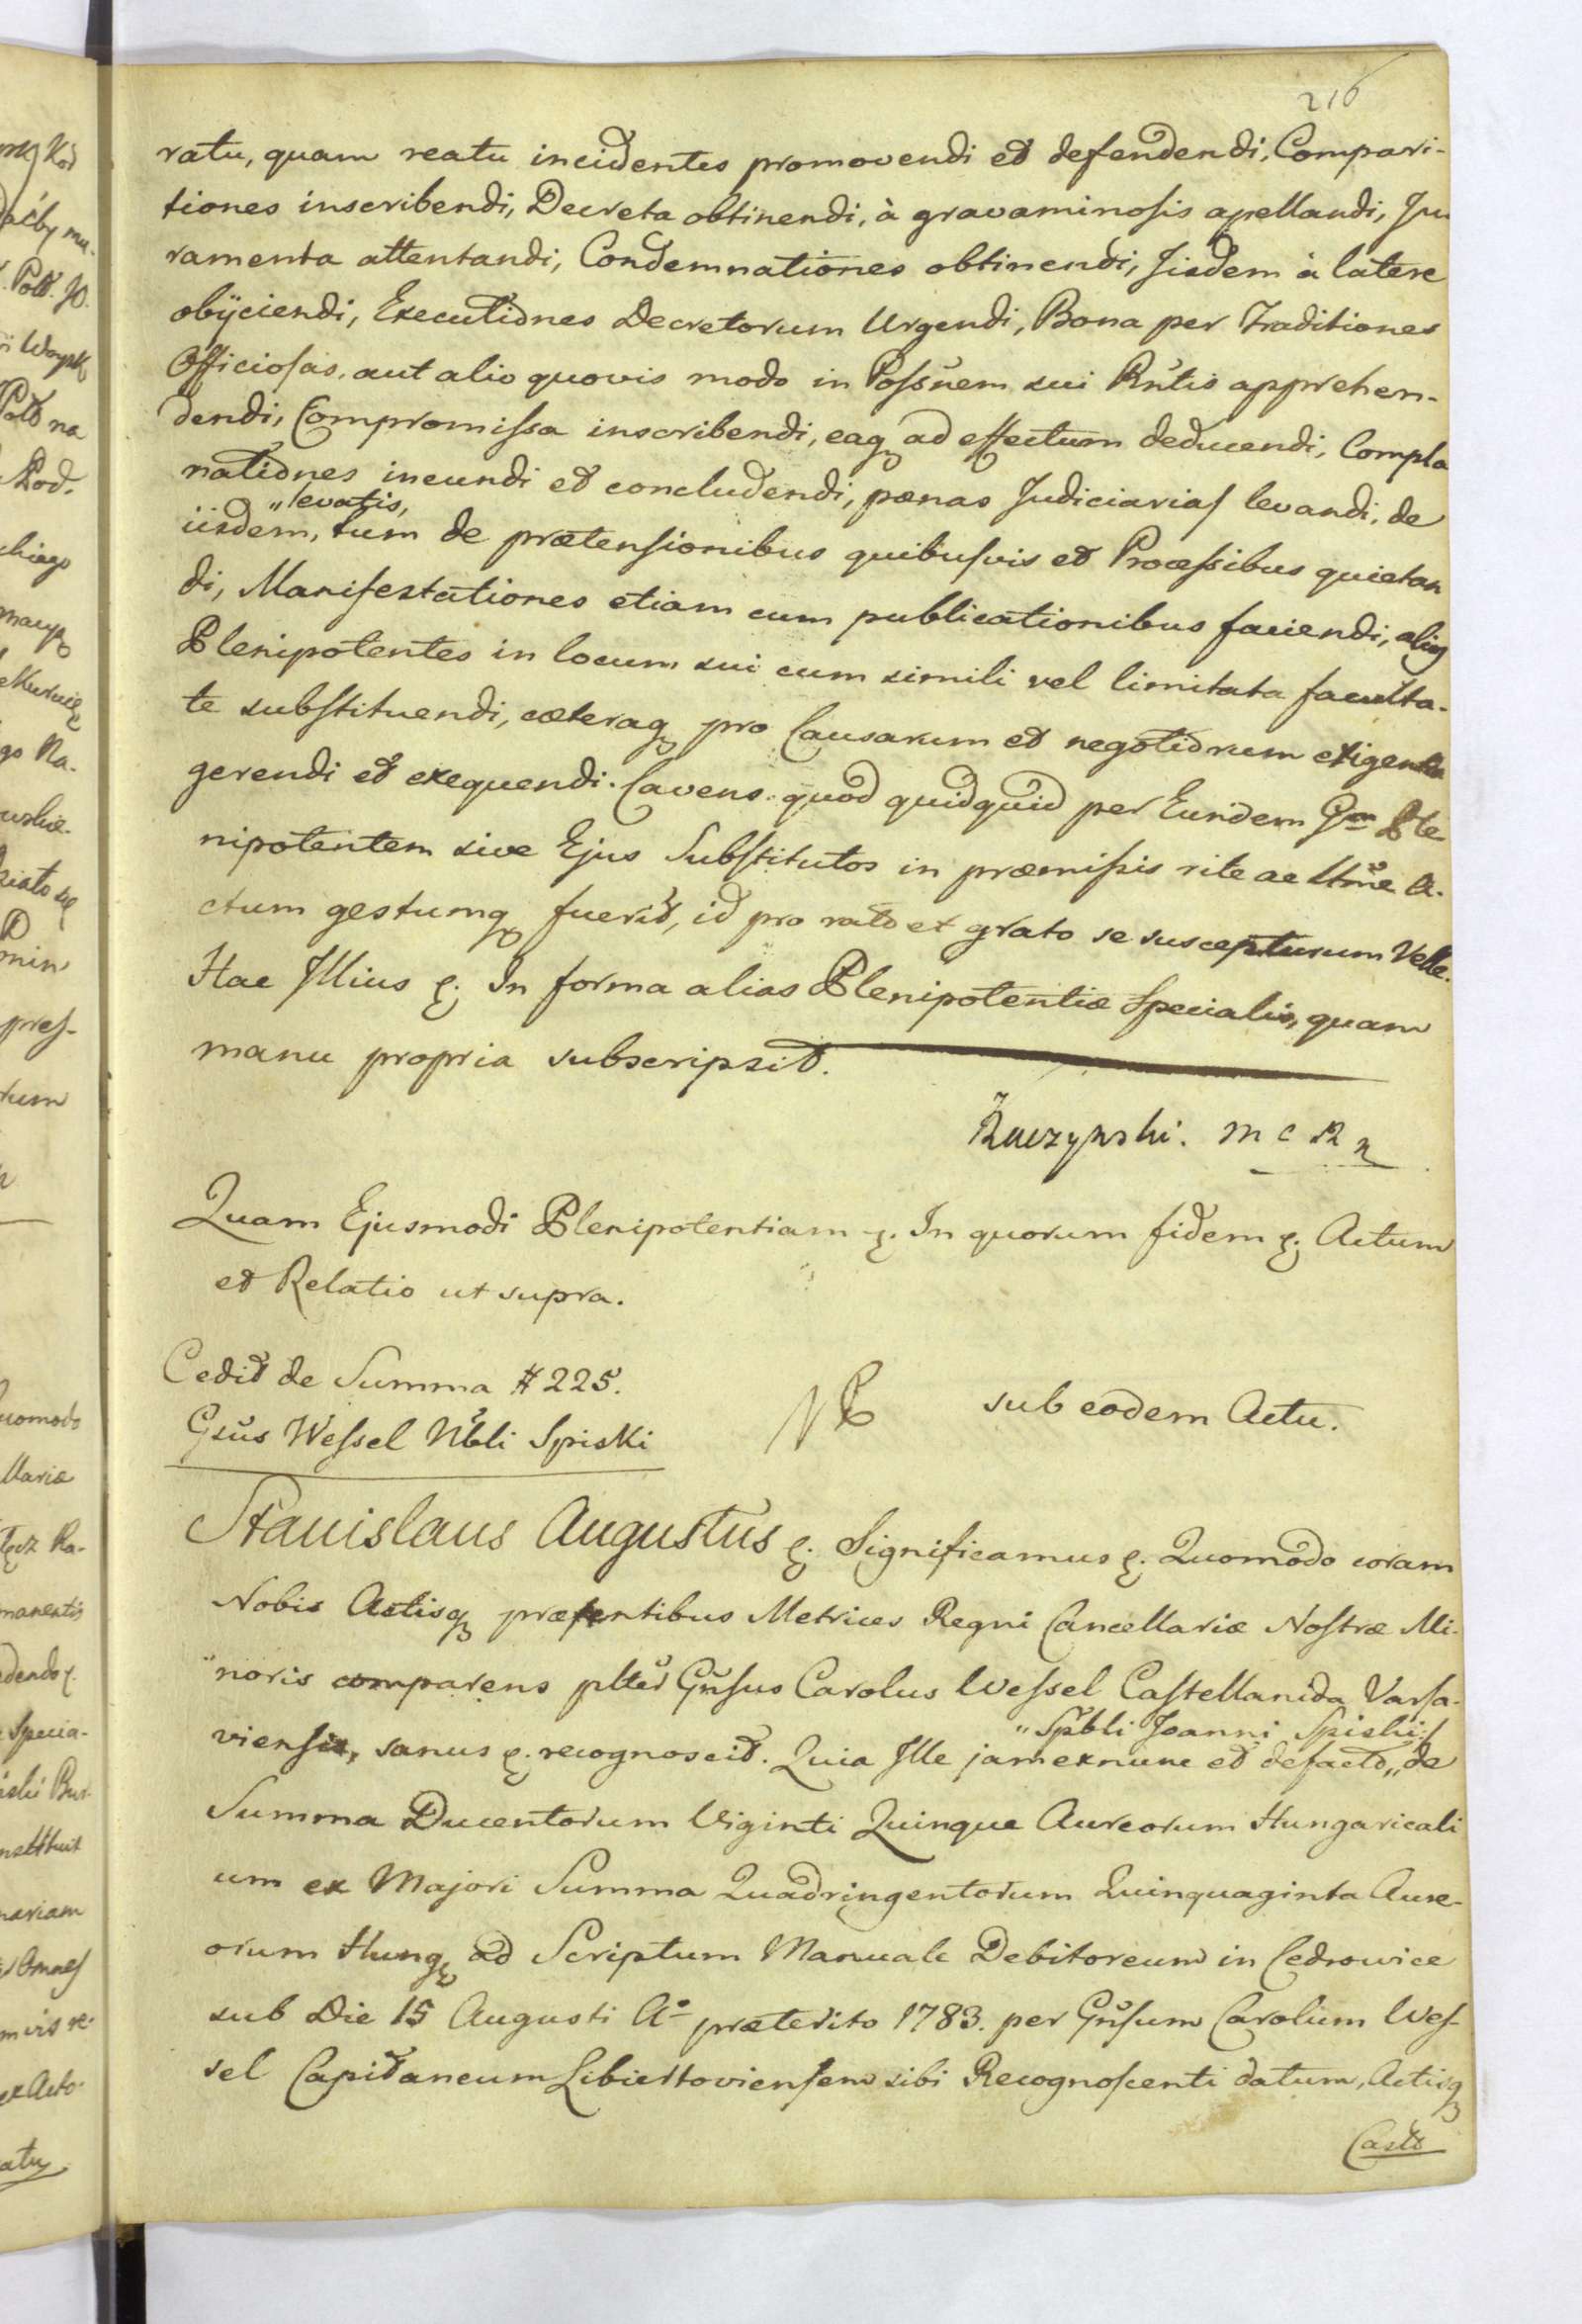 216
ratu, quam reatu incidentes promovendi et defendendi, Compari-
tiones inscribendi, Decreta obtinendi, à gravaminosis apellandi, Ju
ramenta attentandi, Condemnationes obtinendi, Jisdem à latere
obÿciendi, Executiones Decretorum Urgendi, Bona per Traditiones
Officiosas, aut alio quovis modo in Possnem sui Rntis apprehen-
dendi, Compromissa inscribendi, eaq ad effectum deducendi, Compla
nationes ineundi et concludendi, pænas Judiciarias levandi, de
"levatis,
iisdem, tum de prætensionibus quibusvis et Processibus quietan
di, Manifestationes etiam cum publicationibus faciendi, aliosq
Plenipotentes in locum sui cum simili vel limitata faculta-
te substituendi, cæteraq pro Causarum et negotiorum exigentia
gerendi et exequendi. Cavens quod quidquid per Eundem Gm Ple
nipotentem sive Ejus Substitutos in præmissis rite ac ltme a-
ctum gestumq fuerit, id pro rato et grato se suscepturum Velle.
Hac Illius ę. In forma alias Plenipotentiæ Specialis, quam
manu propria subscripsit.
Raczynski. M C R
Quam Ejusmodi Plenipotentiam ę. In quorum fidem ę. Actum
et Relatio ut supra.
Cedit de Summa # 225.
Gsus Wessel Nbli Spiski
sub eodem Actu.
Stanislaus Augustus ę. Significamus ę. Quomodo coram
Nobis Actisq præsentibus Metrices Regni Cancellariæ Nostræ Mi-
noris comparens plter Gnsus Carolus Wessel Castellanida Varsa-
"Spbli Joanni Spiski
viensis, sanus ę. recognoscit. Quia Ille jam exnunc et defacto,, de
Summa Ducentorum Viginti Quinque Aureorum Hungaricali
um ex Majori Summa Quadringentorum Quinquaginta Aure-
orum Hung ad Scriptum Manuale Debitoreum in Cedrowice
sub Die 15 Augusti Ao præterito 1783. per Gnsum Carolum Wes-
sel Capitaneum Libiertoviensem sibi Recognoscenti datum, Actisq
Castr